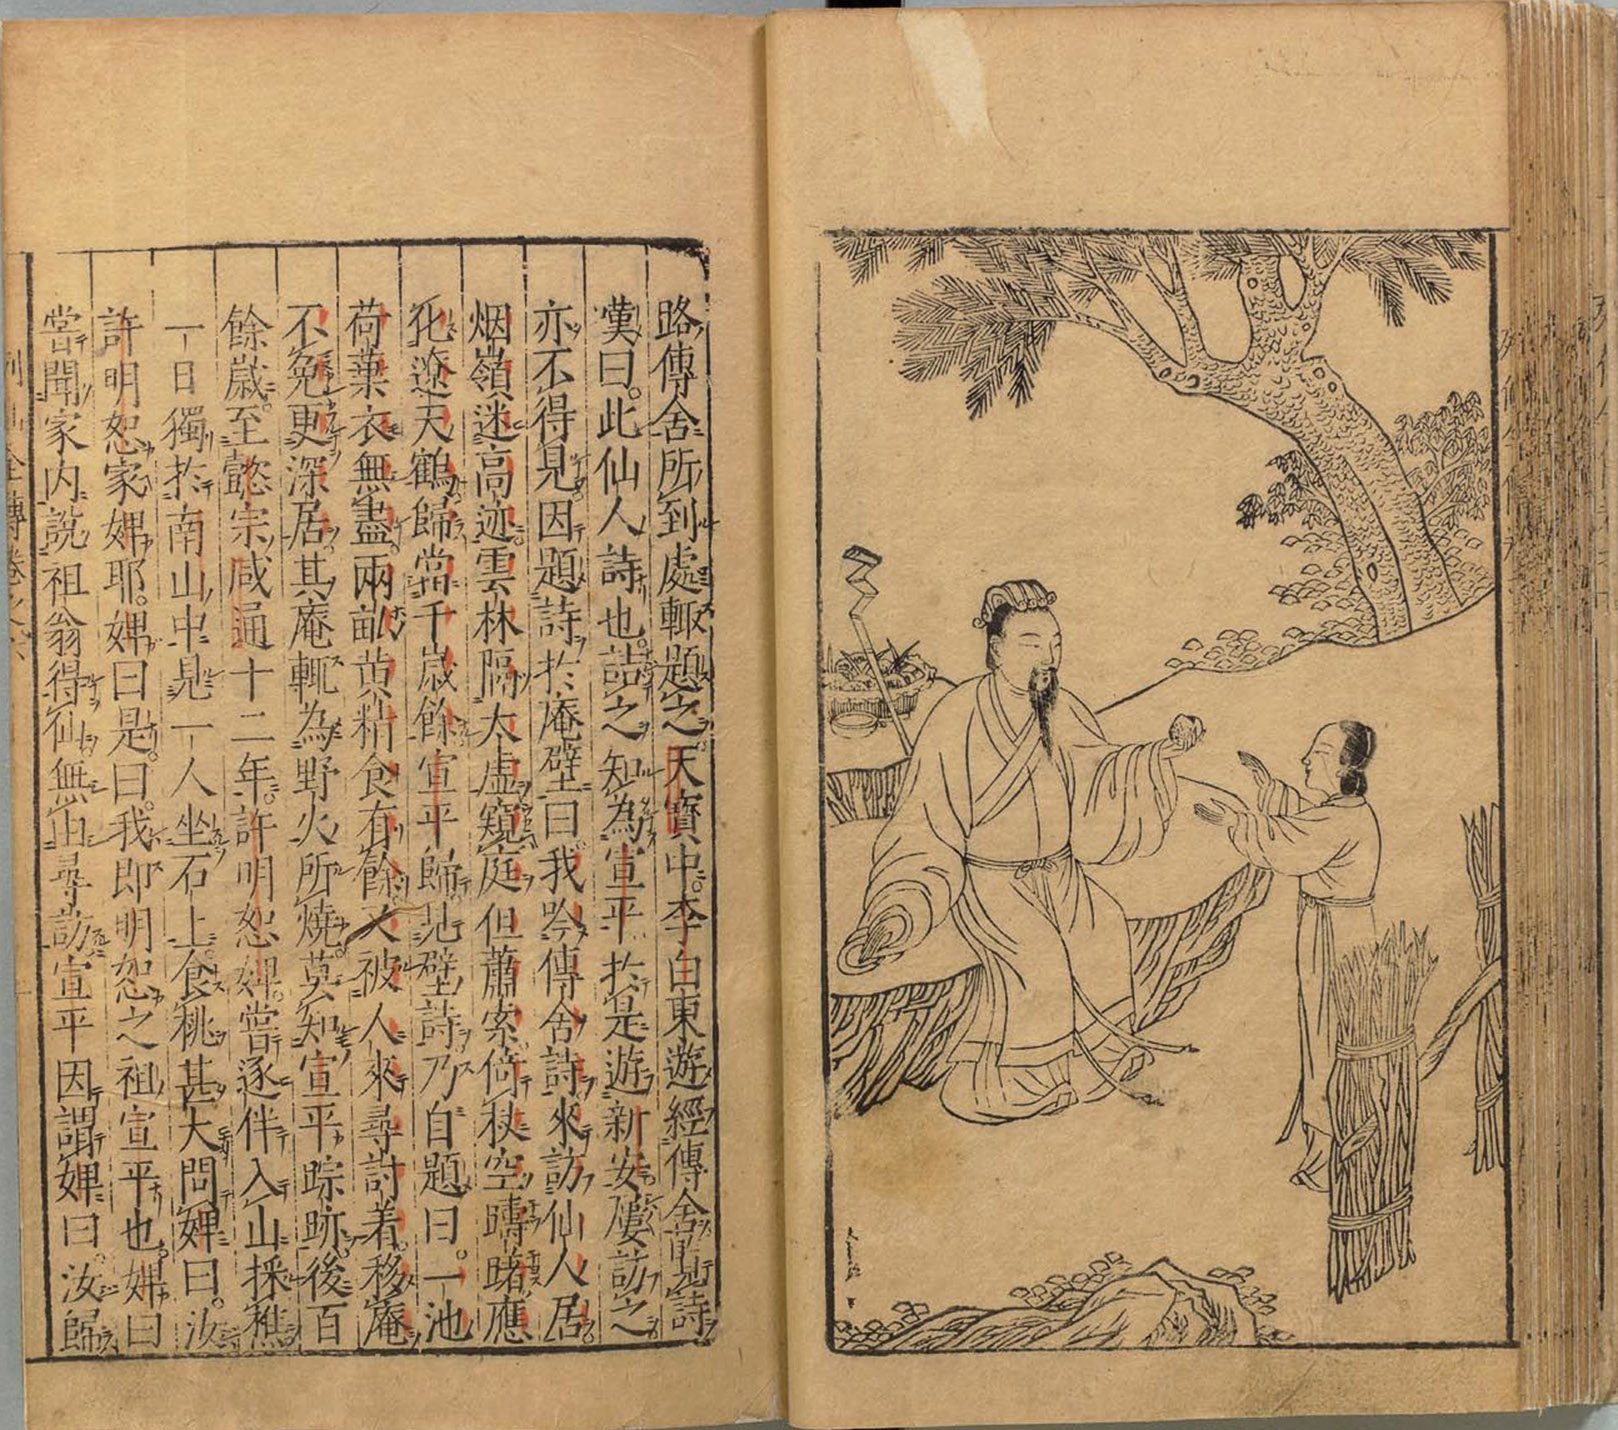 路傳舍所到處輙題之天寳中。李白東遊經傳舍覽詩
嘆曰。此仙人詩也。詰之知為宣平於是遊新安屢訪之
亦不得見。因題詩於庵壁曰我吟傳舍詩來訪仙人居
烟嶺迷高迹雲林隔太虚窺庭但蕭索倚秋空躊躇應
化遼天鶴歸當千嵗餘宣平歸見壁詩乃自題曰。一池
荷葉衣無盡。兩畝黄精食有餘又被人來尋討着。移庵
不免更深居其庵輙為野火所燒。莫知宣平踪跡。後百
餘嵗。至懿宗咸通十二年。許明恕婢。嘗逐伴入山採樵
一日獨於南山中見一人坐石上。食桃甚大問婢曰。汝
許明恕家婢耶。婢曰是。曰。我即明恕之祖宣平也。婢曰
嘗聞家内説祖翁得仙。無由尋訪宣平因謂婢曰。汝歸
列仙全傳卷之六